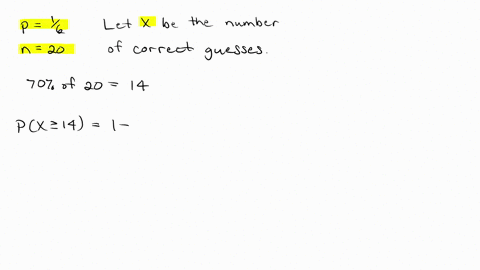 p = 1/6 Let X be the number
n = 20 of correct guesses.
70% of 20 = 14
P(X ≥ 14) = 1 −